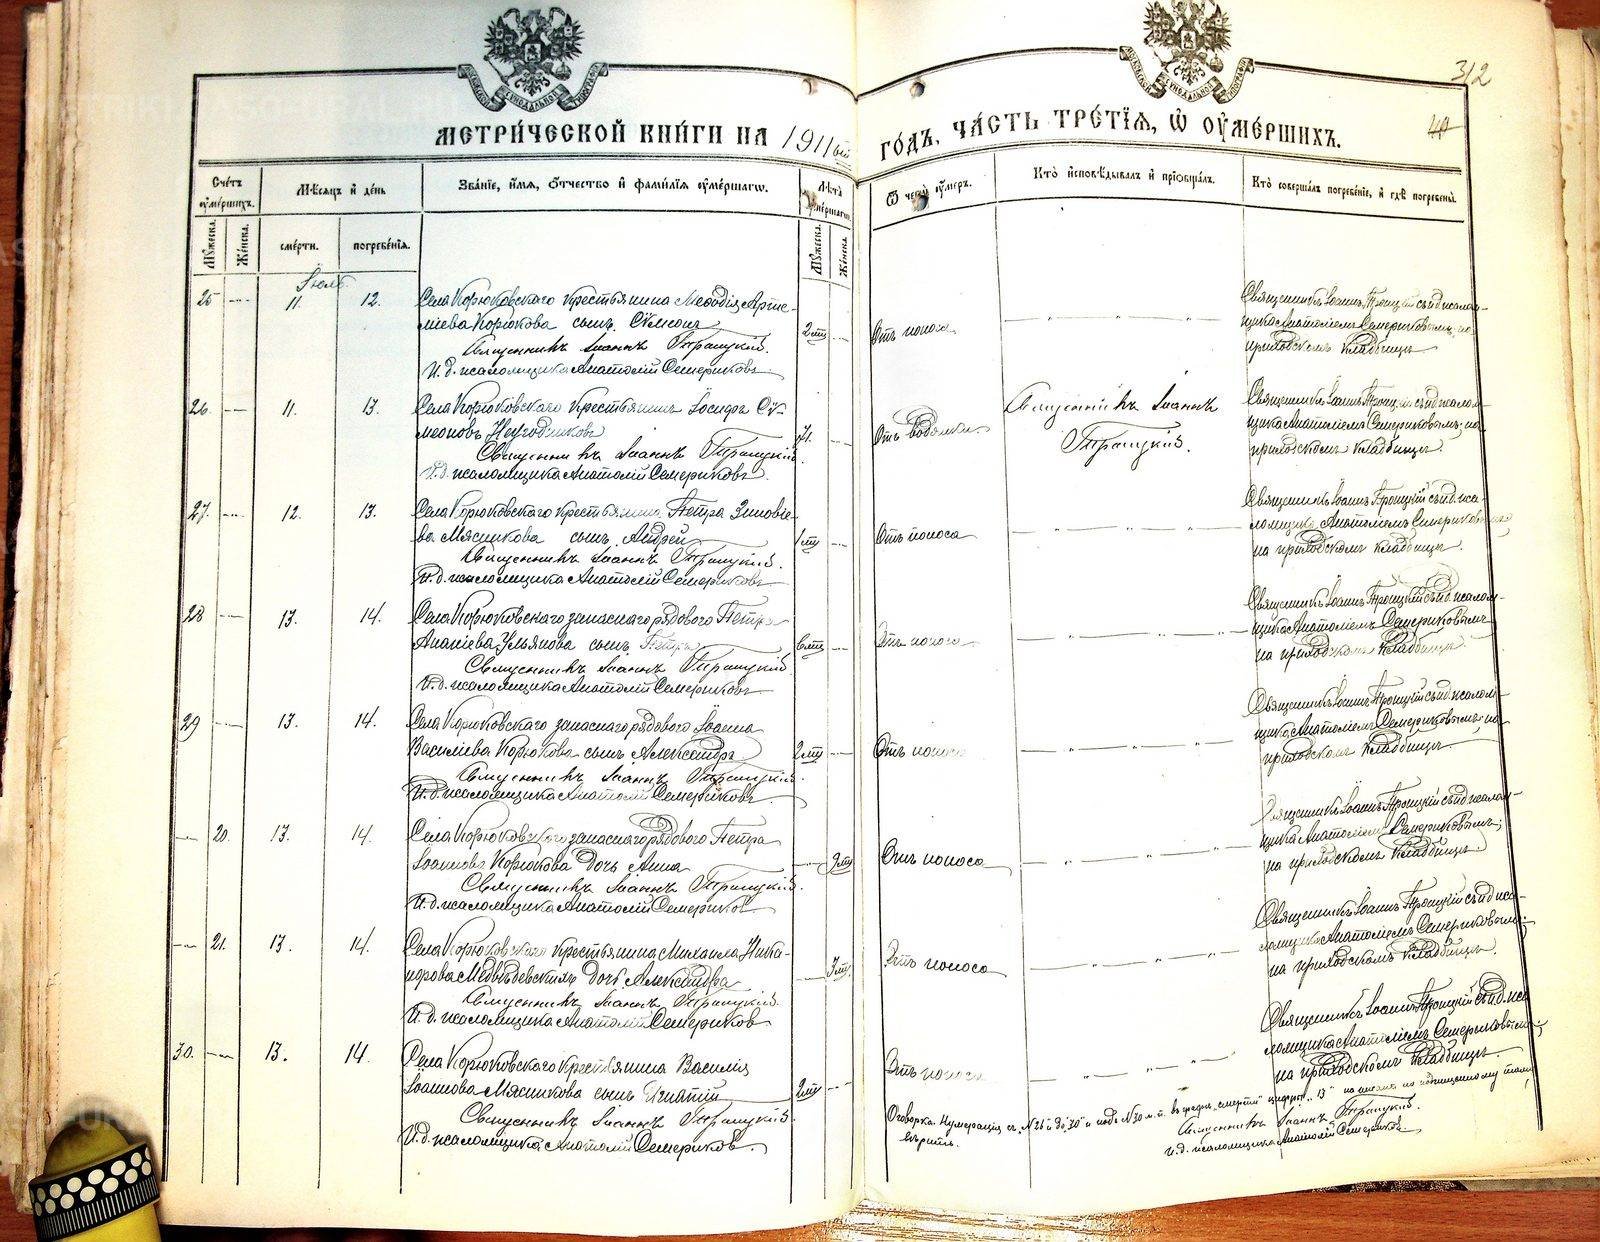 312
40
МЕТРИ́ЧЕСКОЙ КНИ́ГИ НА 1911ый ГО́ДЪ, ЧА́СТЬ ТРЕ́ТІѦ, Ѡ ОУМЕ́РШИХЪ.
Сче́тъ оуме́ршихъ.
Мꙋ́жеска.
Же́нска.
Мѣ́сяцъ и де́нь
сме́рти.
погребе́нїѧ.
Зва́нїе, и́мѧ, о́тчество и фами́лїѧ оуме́ршагѡ.
Лѣ́та оуме́ршагѡ.
Мꙋ́жеска.
Же́нска.
Ѿ чегѡ̀ оу́меръ.
Кто̀ и҆сповѣ́дывалъ и҆ прїѡбща́лъ.
Кто̀ соверша́лъ погребе́нїе, и҆ гдѣ̀ погребены̀.
Іюль
25 — 11. 12.
Села Корюковскаго крестьянина Меѳодія Арте-
міева Корюкова сынъ Сѵмеонъ
Священникъ Іоаннъ Троицкій.
И. д. псаломщика Анатолій Семериковъ
Отъ поноса
Священникъ Іоаннъ Троицкій съ и.д. псалом-
щика Анатоліемъ Семериковымъ, на
приходскомъ кладбищѣ
26. — 11. 13.
Села Корюковскаго крестьянинъ Іосифъ Сѵ-
меоновъ
Священникъ Іоаннъ Троицкій
И. д. псаломщика Анатолій Семериковъ
71.
Отъ водянки
Священникъ Іоаннъ
Троицкій.
Священникъ Іоаннъ Троицкій съ и.д. псалом-
щика Анатоліемъ Семериковымъ, на
приходскомъ кладбищѣ.
27. — 12. 13.
Села Корюковскаго крестьянина Петра Зиновіе-
ва Мясникова сынъ Андрей
Священникъ Іоаннъ Троицкій.
И. д. псаломщика Анатолій Семериковъ
Отъ поноса
Священникъ Іоаннъ Троицкій съ и.д. пса-
ломщика Анатоліемъ Семериковымъ
на приходскомъ кладбищѣ.
28 — 13. 14.
Села Корюковскаго запаснаго рядового Петра
Ананіева Ульянова сынъ Петръ
Священникъ Іоаннъ Троицкій
И. д. псаломщика Анатолій Семериковъ
Отъ поноса
Священникъ Іоаннъ Троицкій съ и.д. псалом-
щика Анатоліемъ Семериковымъ
на приходскомъ кладбищѣ.
29 — 13. 14.
Села Корюковскаго запаснаго рядового Іоанна
Василіева Корюкова сынъ Александръ
Священникъ Іоаннъ Троицкій.
И. д. псаломщика Анатолій Семериковъ
Отъ поноса
Священникъ Іоаннъ Троицкій съ и.д. псалом-
щика Анатоліемъ Семериковымъ, на
приходскомъ кладбищѣ.
— 20. 13. 14.
Села Корюковскаго запаснаго рядового Петра
Іоаннова Корюкова дочь Анна
Священникъ Іоаннъ Троицкій.
И. д. псаломщика Анатолій Семериковъ
Отъ поноса
Священникъ Іоаннъ Троицкій съ и.д. псалом-
щика Анатоліемъ Семериковымъ,
на приходскомъ кладбищѣ.
— 21. 13. 14.
Села Корюковскаго крестьянина Михаила Ника-
норова Медвѣдевскихъ дочь Александра
Священникъ Іоаннъ Троицкій
И. д. псаломщика Анатолій Семериковъ
Отъ поноса
Священникъ Іоаннъ Троицкій съ и.д. пса-
ломщика Анатоліемъ Семериковымъ
на приходскомъ кладбищѣ.
30. — 13. 14.
Села Корюковскаго крестьянина Василія
Іоаннова Мясникова сынъ Игнатій
Священникъ Іоаннъ Троицкій.
И. д. псаломщика Анатолій Семериковъ.
Отъ поноса
Священникъ Іоаннъ Троицкій съ и.д. пса-
ломщика Анатоліемъ Семериковымъ,
на приходскомъ кладбищѣ.
Оговорка. Нумерація съ „№26 и до „30" и подъ №30 м.п. въ графѣ „смерти" цифра „13" по подчищенному
вѣрить.
Священникъ Іоаннъ Троицкій.
И. д. псаломщика Анатолій Семериковъ